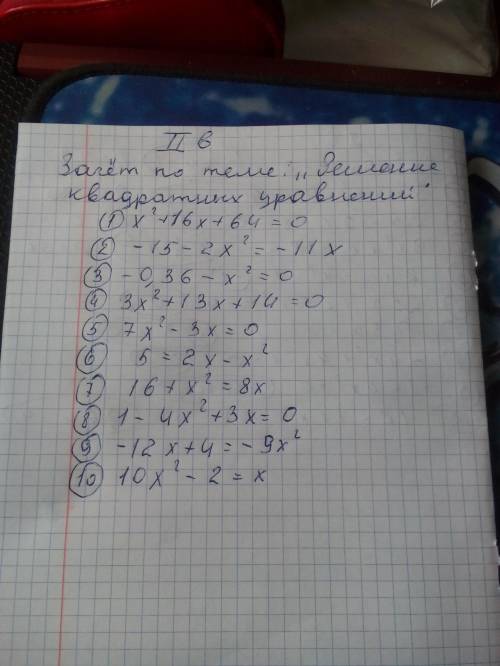 II в
Зачёт по теме: „Решение
квадратных уравнений"
① x²+16x+64=0
② -15-2x²=-11x
③ -0,36-x²=0
④ 3x²+13x+14=0
⑤ 7x²-3x=0
⑥ 5=2x-x²
⑦ 16+x²=8x
⑧ 1-4x²+3x=0
⑨ -12x+4=-9x²
⑩ 10x²-2=x